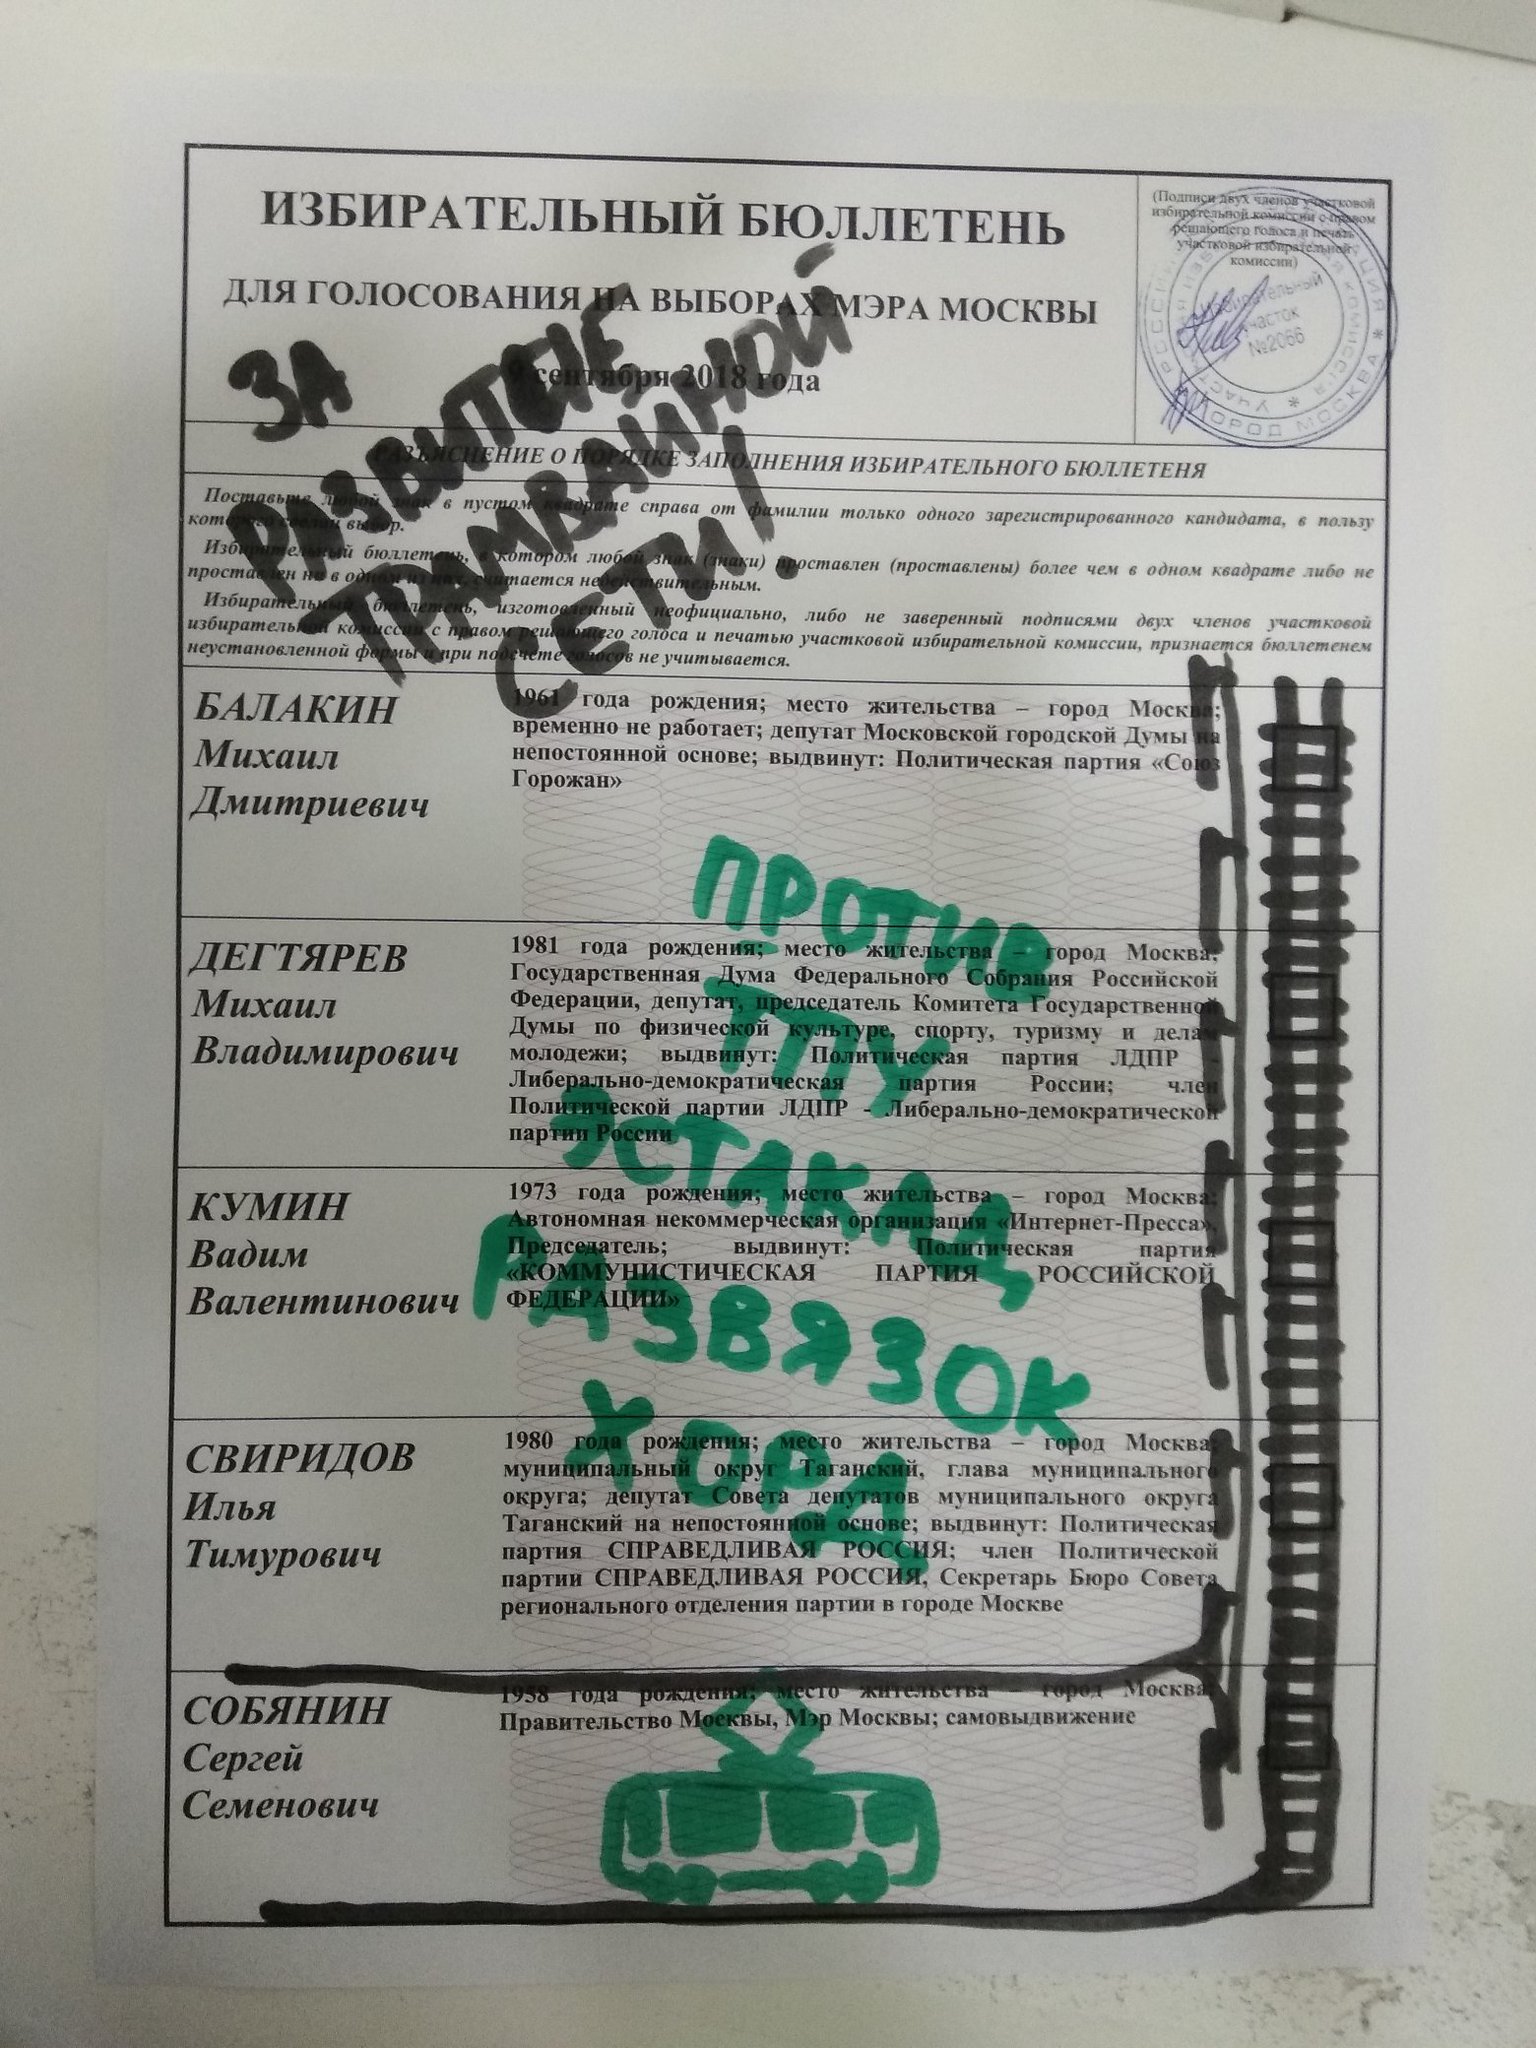 ИЗБИРАТЕЛЬНЫЙ БЮЛЛЕТЕНЬ
ДЛЯ ГОЛОСОВАНИЯ НА ВЫБОРАХ МЭРА МОСКВЫ
9 сентября 2018 года
(Подписи двух членов участковой
избирательной комиссии с правом
решающего голоса и печать
участковой избирательной
комиссии)
Избирательный
участок
№2066
ГОРОД МОСКВА
ЗА
РАЗВИТИЕ
ТРАМВАЙНОЙ
СЕТИ!
РАЗЪЯСНЕНИЕ О ПОРЯДКЕ ЗАПОЛНЕНИЯ ИЗБИРАТЕЛЬНОГО БЮЛЛЕТЕНЯ
Поставьте любой знак в пустом квадрате справа от фамилии только одного зарегистрированного кандидата, в пользу
которого сделан выбор.
Избирательный бюллетень, в котором любой знак (знаки) проставлен (проставлены) более чем в одном квадрате либо не
проставлен ни в одном из них, считается недействительным.
Избирательный бюллетень, изготовленный неофициально, либо не заверенный подписями двух членов участковой
избирательной комиссии с правом решающего голоса и печатью участковой избирательной комиссии, признается бюллетенем
неустановленной формы и при подсчете голосов не учитывается.
БАЛАКИН
Михаил
Дмитриевич
1961 года рождения; место жительства – город Москва;
временно не работает; депутат Московской городской Думы на
непостоянной основе; выдвинут: Политическая партия «Союз
Горожан»
ДЕГТЯРЕВ
Михаил
Владимирович
1981 года рождения; место жительства – город Москва;
Государственная Дума Федерального Собрания Российской
Федерации, депутат, председатель Комитета Государственной
Думы по физической культуре, спорту, туризму и делам
молодежи; выдвинут: Политическая партия ЛДПР -
Либерально-демократическая партия России; член
Политической партии ЛДПР - Либерально-демократической
партии России
КУМИН
Вадим
Валентинович
1973 года рождения; место жительства – город Москва;
Автономная некоммерческая организация «Интернет-Пресса»,
Председатель; выдвинут: Политическая партия
«КОММУНИСТИЧЕСКАЯ ПАРТИЯ РОССИЙСКОЙ
ФЕДЕРАЦИИ»
СВИРИДОВ
Илья
Тимурович
1980 года рождения; место жительства – город Москва;
муниципальный округ Таганский, глава муниципального
округа; депутат Совета депутатов муниципального округа
Таганский на непостоянной основе; выдвинут: Политическая
партия СПРАВЕДЛИВАЯ РОССИЯ; член Политической
партии СПРАВЕДЛИВАЯ РОССИЯ, Секретарь Бюро Совета
регионального отделения партии в городе Москве
СОБЯНИН
Сергей
Семенович
1958 года рождения; место жительства – город Москва;
Правительство Москвы, Мэр Москвы; самовыдвижение
ПРОТИВ
ТПУ
ЭСТАКАД
РАЗВЯЗОК
ХОРД